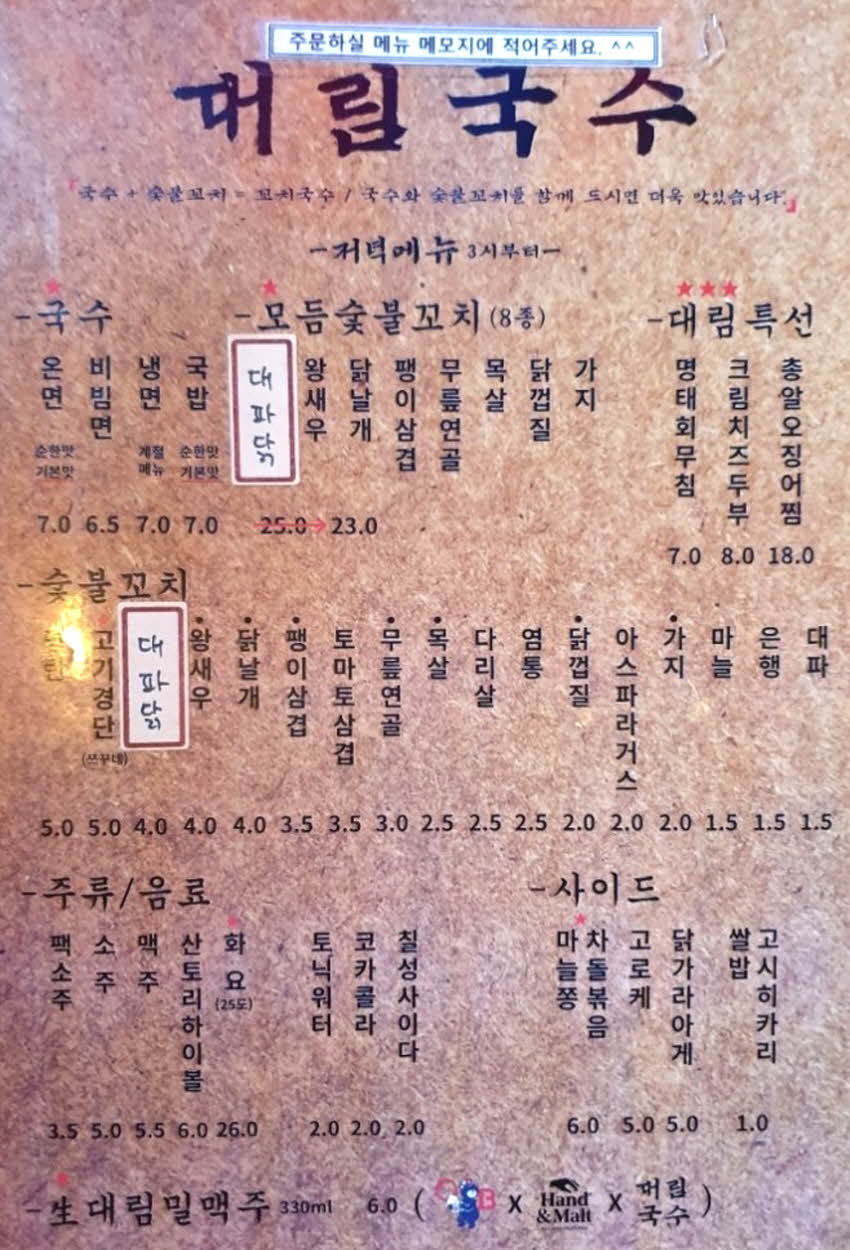 주문하실 메뉴 메모지에 적어주세요. ^^
대림국수
『국수 + 숯불꼬치 = 꼬치국수 / 국수와 숯불꼬치를 함께 드시면 더욱 맛있습니다.』
-저녁메뉴 3시부터-
-국수
온면 순한맛 기본맛 7.0
비빔면 6.5
냉면 계절메뉴 7.0
국밥 순한맛 기본맛 7.0
-모듬숯불꼬치(8종)
대파닭
왕새우
닭날개
팽이삼겹
무릎연골
목살
닭껍질
가지
25.0→23.0
-대림특선
명태회무침 7.0
크림치즈두부 8.0
총알오징어찜 18.0
-숯불꼬치
5.0
고기경단 (쯔꾸네) 5.0
대파닭 4.0
왕새우 4.0
닭날개 4.0
팽이삼겹 3.5
토마토삼겹 3.5
무릎연골 3.0
목살 2.5
다리살 2.5
염통 2.5
닭껍질 2.0
아스파라거스 2.0
가지 2.0
마늘 1.5
은행 1.5
대파 1.5
-주류/음료
팩소주 3.5
소주 5.0
맥주 5.5
산토리하이볼 6.0
화요 (25도) 26.0
토닉워터 2.0
코카콜라 2.0
칠성사이다 2.0
-사이드
마늘쫑 차돌볶음 6.0
고로케 5.0
닭가라아게 5.0
고시히카리 쌀밥 1.0
-生대림밀맥주 330ml 6.0 ( B X Hand &Malt X 대림국수 )